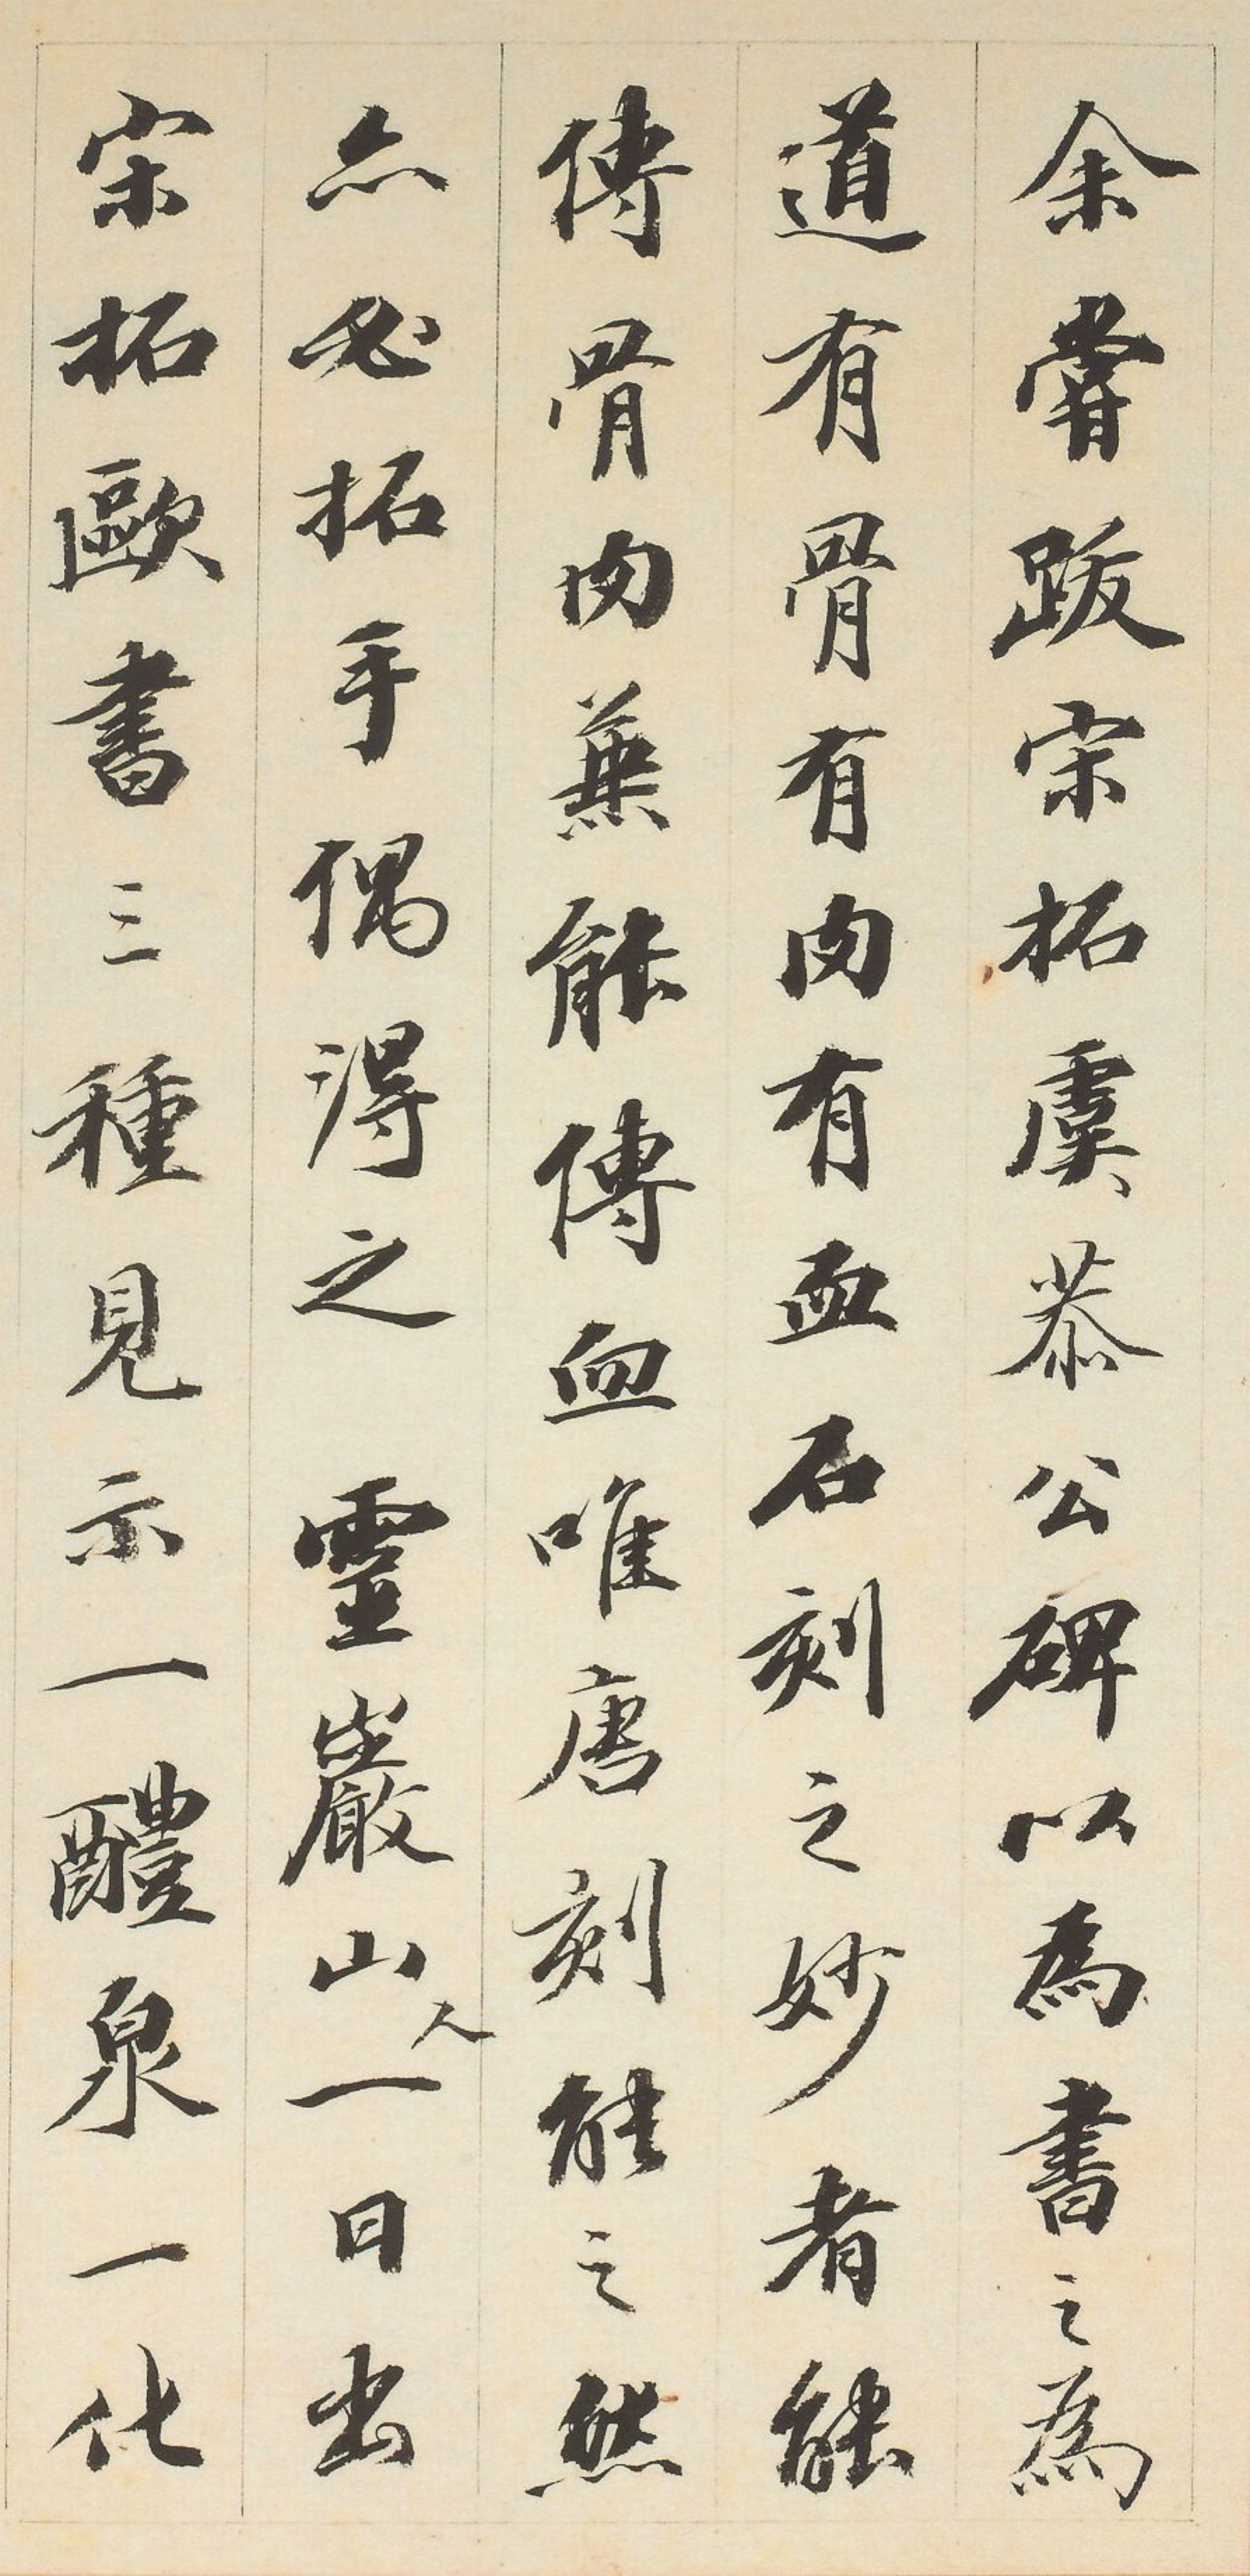 余嘗跋宋拓虞恭公碑以為書之為
道有骨有肉有血石刻之妙者能
傳骨肉兼能傳血唯唐刻能之然
亦必拓手偶得之靈巖山人一日出
宋拓歐書三種見示一醴泉一化